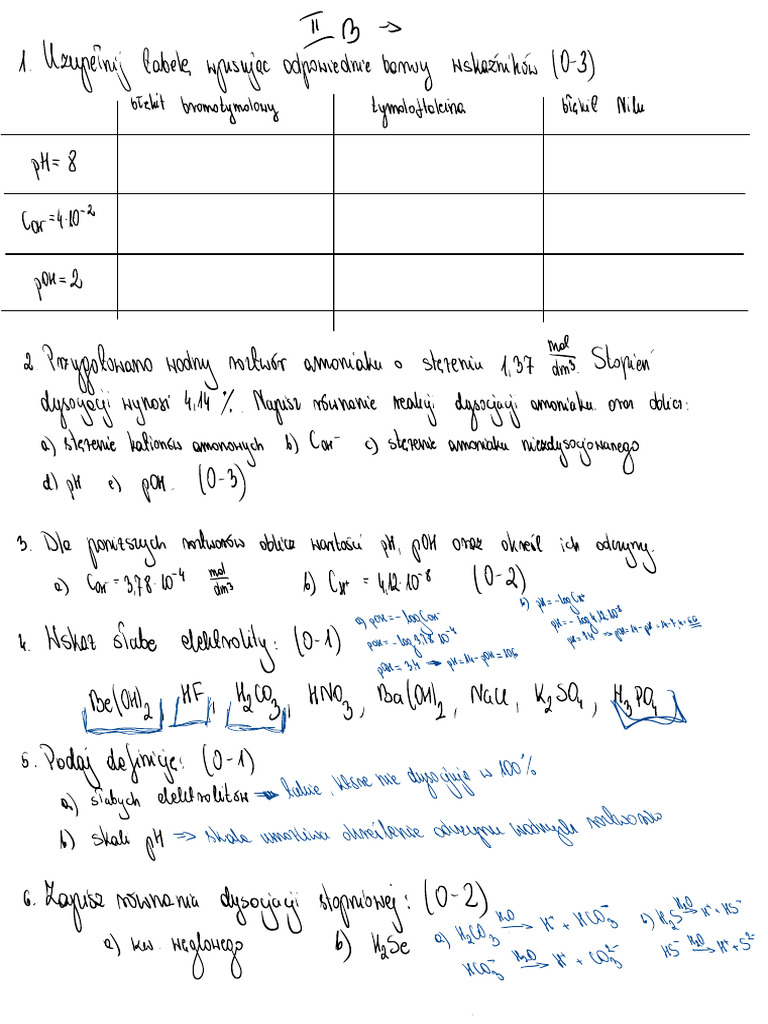 II B →
1. Uzupełnij tabelę wpisując odpowiednie barwy wskaźników (0-3)
błękit bromotymolowy tymoloftaleina błękit Nilu
pH = 8
COH⁻ = 4·10⁻²
pOH = 2
2. Przygotowano wodny roztwór amoniaku o stężeniu 1,37 mol/dm³. Stopień
dysocjacji wynosi 4,14 %. Napisz równanie reakcji dysocjacji amoniaku oraz oblicz:
a) stężenie kationów amonowych b) COH⁻ c) stężenie amoniaku niezdysocjowanego
d) pH e) pOH. (0-3)
3. Dla poniższych roztworów oblicz wartości pH, pOH oraz określ ich odczyny.
a) COH⁻ = 3,78·10⁻⁴ mol/dm³ b) CH⁺ = 4,12·10⁻⁸ (0-2)
a) pOH = -log COH⁻
pOH = -log 3,78·10⁻⁴
pOH = 3,4 → pH = 14 - pOH = 10,6
b) pH = -log CH⁺
pH = -log 4,12·10⁻⁸
pH = 7,4 → pOH = 14 - pH = 14 - 7,4 = 6,6
4. Wskaż słabe elektrolity: (0-1)
Be(OH)₂, HF, H₂CO₃, HNO₃, Ba(OH)₂, NaCl, K₂SO₄, H₃PO₄
5. Podaj definicję: (0-1)
a) słabych elektrolitów → takie, które nie dysocjują w 100%
b) skali pH ⇒ skala umożliwia określanie odczynu wodnych roztworów
6. Zapisz równania dysocjacji stopniowej: (0-2)
a) kw. węglowego b) H₂Se
a) H₂CO₃ H₂O→ H⁺ + HCO₃⁻
HCO₃⁻ H₂O→ H⁺ + CO₃²⁻
b) H₂S H₂O→ H⁺ + HS⁻
HS⁻ H₂O→ H⁺ + S²⁻